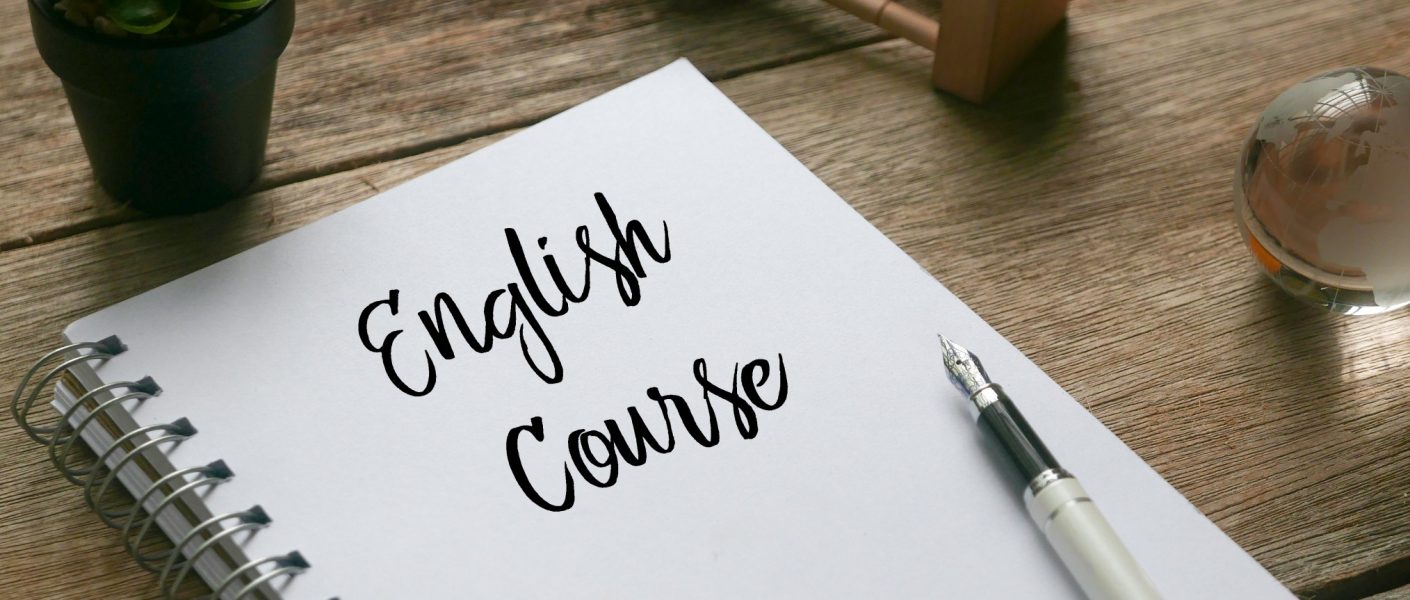 English
Course